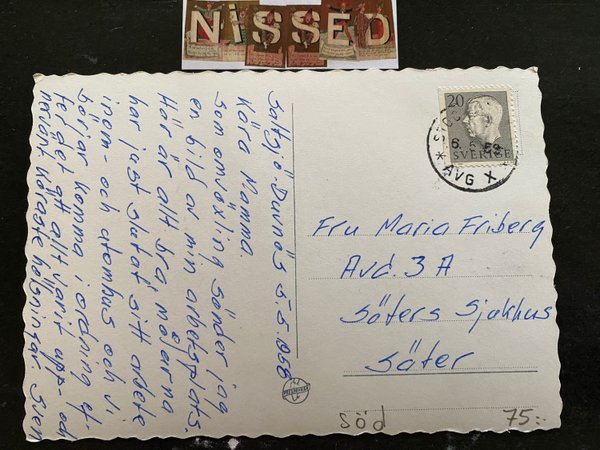 NiSSED
Saltsjö-Duvnäs 5.5.1958
Kära Mamma
Som omväxling sänder jag
en bild av min arbetsplats.
Här är allt bra, målarna
har just slutat sitt arbete
inom- och utomhus och vi
börjar komma i ordning ef-
ter det att allt varit upp- och
nervänt. Käraste hälsningar Sven
20
SVERIGE
6. 5 58
* AVG X *
Fru Maria Friberg
Avd. 3 A
Säters Sjukhus
Säter
söd
75:-